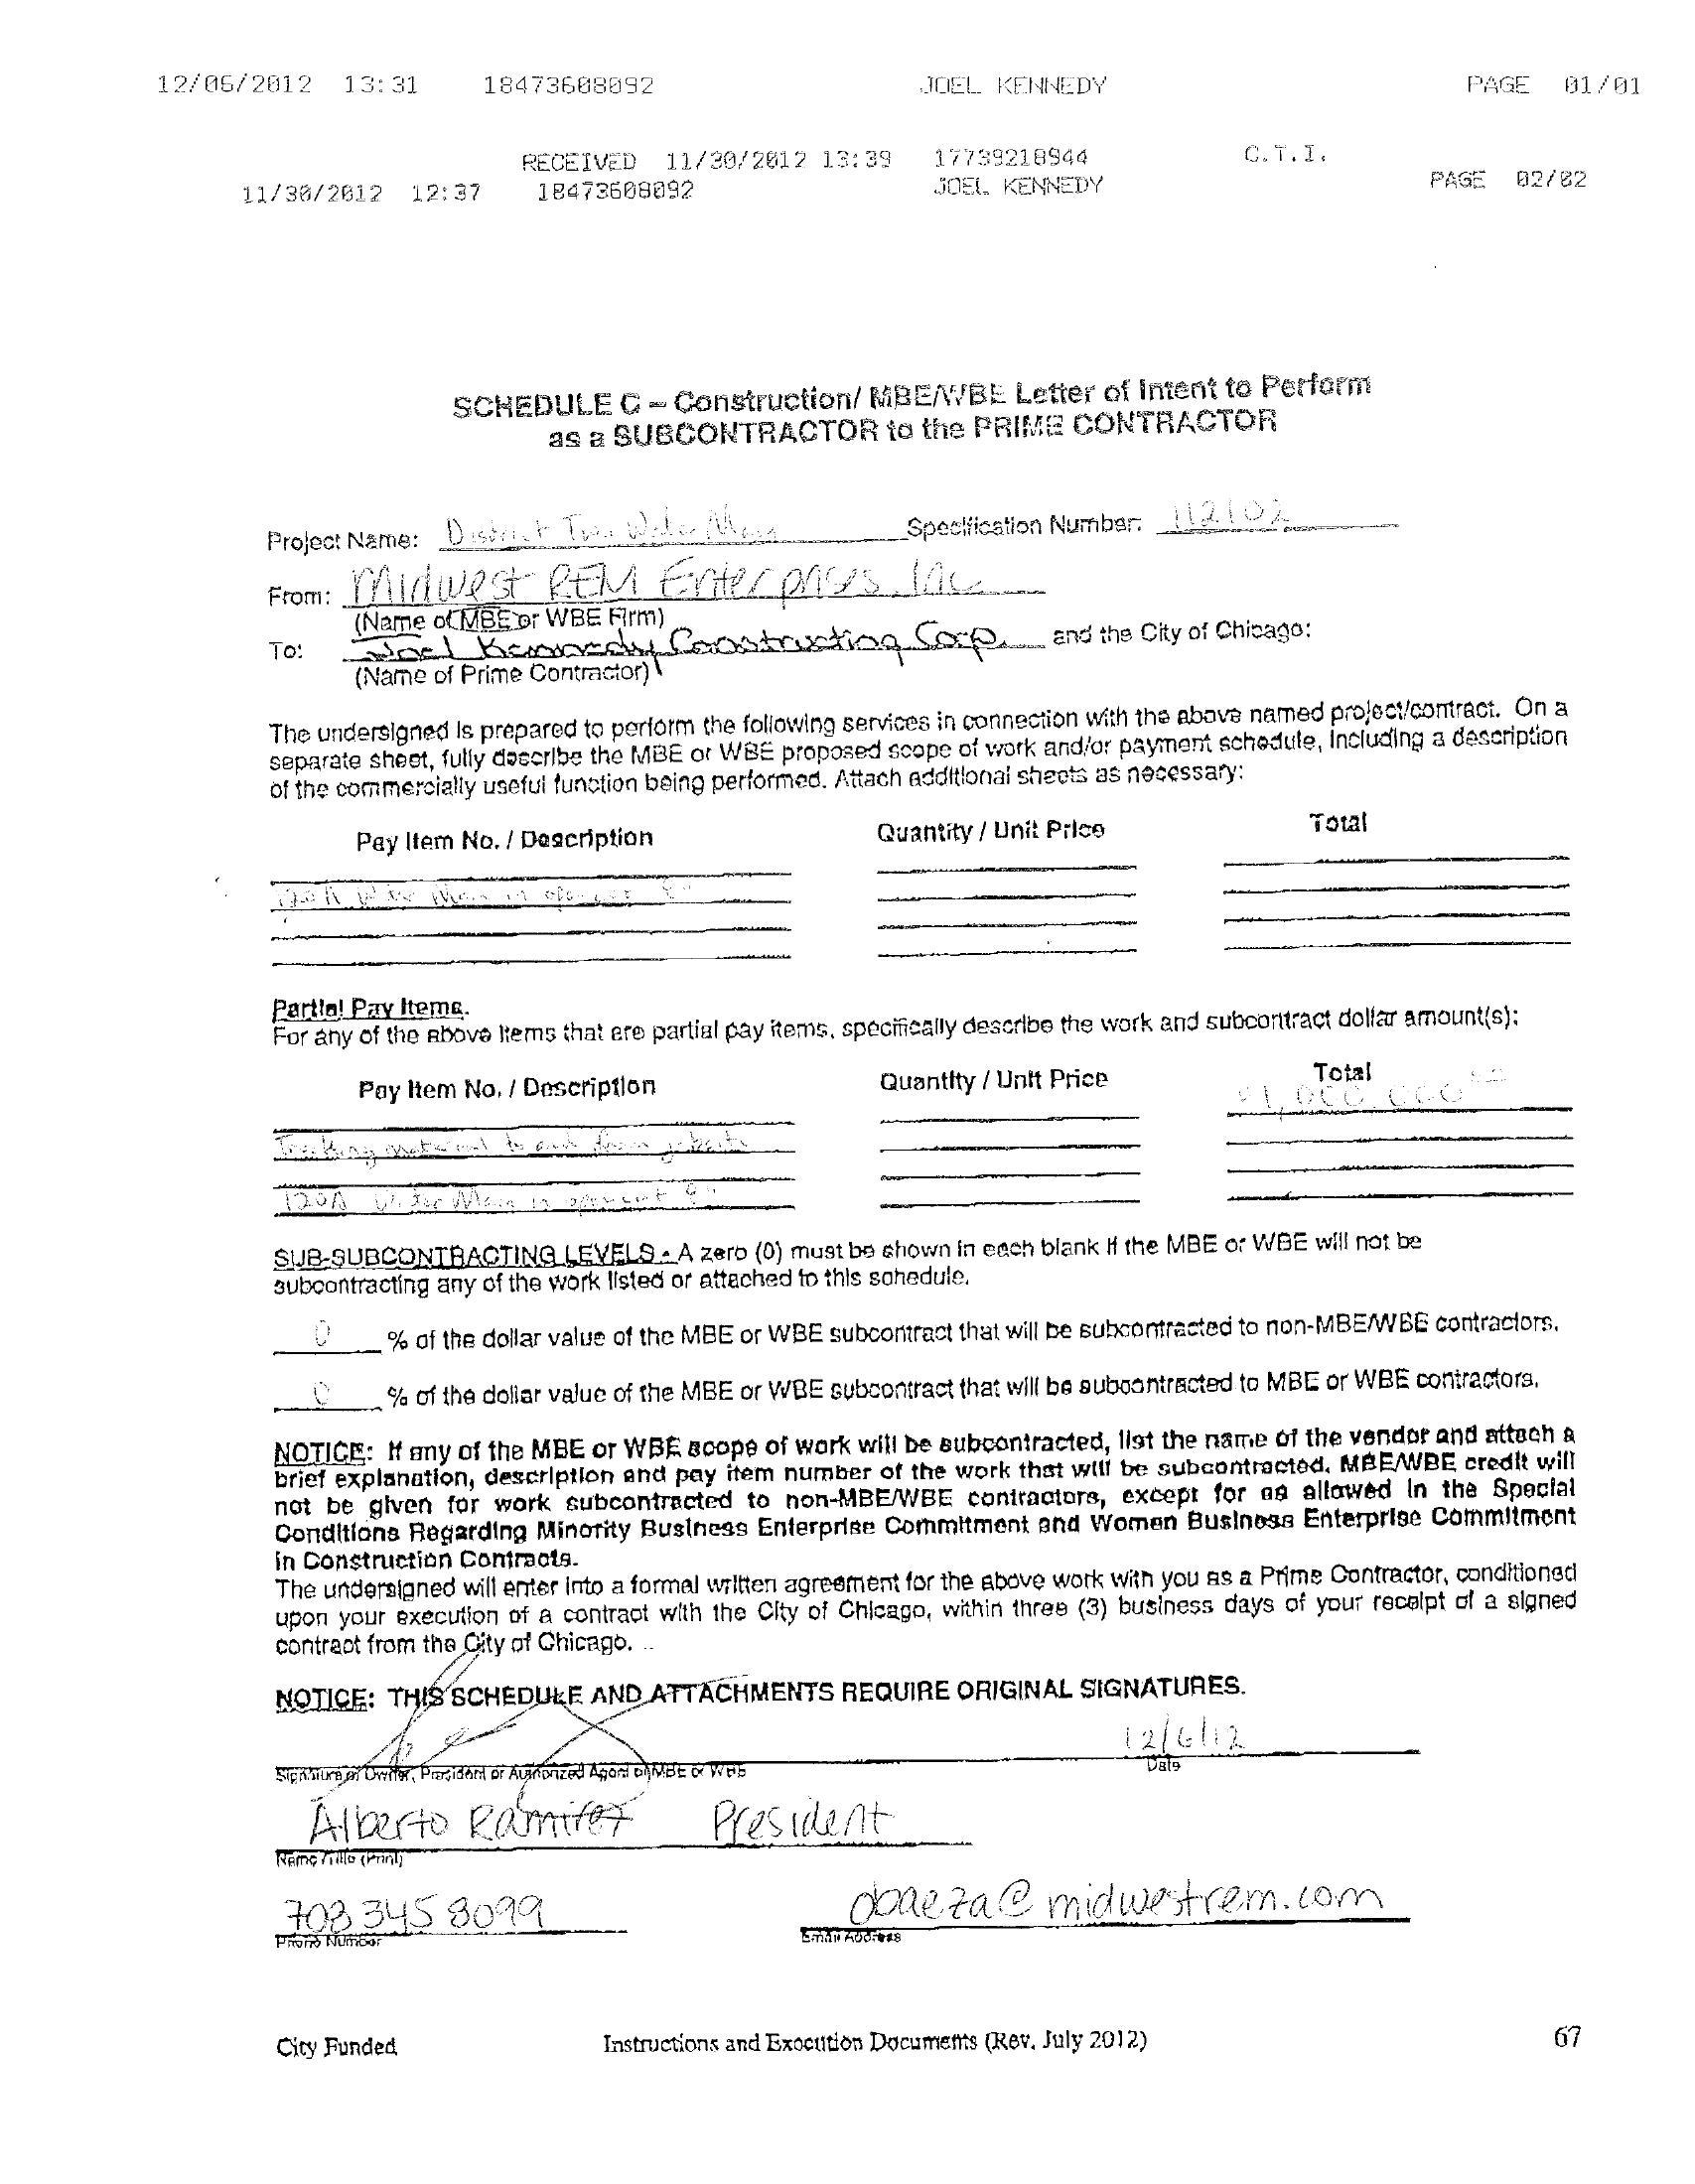 12/06/2012 13:31 18473608092 JOEL KENNEDY PAGE 01/01
RECEIVED 11/30/2012 13:39 17739218944 C.T.I.
11/30/2012 12:37 18473608092 JOEL KENNEDY PAGE 02/02
SCHEDULE C – Construction/ MBE/WBE Letter of Intent to Perform
as a SUBCONTRACTOR to the PRIME CONTRACTOR
Project Name: District Two Water Mains Specification Number: 112102
From: Midwest REM Enterprises, Inc
(Name of MBE or WBE Firm)
To: Joel Kennedy Constructing Corp. and the City of Chicago:
(Name of Prime Contractor)
The undersigned is prepared to perform the following services in connection with the above named project/contract. On a
separate sheet, fully describe the MBE or WBE proposed scope of work and/or payment schedule, including a description
of the commercially useful function being performed. Attach additional sheets as necessary:
Pay Item No. / Description Quantity / Unit Price Total
120A Water Main in 8"
Partial Pay Items.
For any of the above items that are partial pay items, specifically describe the work and subcontract dollar amount(s):
Pay Item No. / Description Quantity / Unit Price Total
$1,000,000
Trucking material to and from jobsite
120A Water Main in 8"
SUB-SUBCONTRACTING LEVELS - A zero (0) must be shown in each blank if the MBE or WBE will not be
subcontracting any of the work listed or attached to this schedule.
0 % of the dollar value of the MBE or WBE subcontract that will be subcontracted to non-MBE/WBE contractors.
0 % of the dollar value of the MBE or WBE subcontract that will be subcontracted to MBE or WBE contractors.
NOTICE: If any of the MBE or WBE scope of work will be subcontracted, list the name of the vendor and attach a
brief explanation, description and pay item number of the work that will be subcontracted. MBE/WBE credit will
not be given for work subcontracted to non-MBE/WBE contractors, except for as allowed in the Special
Conditions Regarding Minority Business Enterprise Commitment and Women Business Enterprise Commitment
in Construction Contracts.
The undersigned will enter into a formal written agreement for the above work with you as a Prime Contractor, conditioned
upon your execution of a contract with the City of Chicago, within three (3) business days of your receipt of a signed
contract from the City of Chicago.
NOTICE: THIS SCHEDULE AND ATTACHMENTS REQUIRE ORIGINAL SIGNATURES.
12/6/12
Signature of Owner, President or Authorized Agent of MBE or WBE Date
Alberto Ramirez President
Name/Title (Print)
708 345 8099 obaeza@midwestrem.com
Phone Number Email Address
City Funded Instructions and Execution Documents (Rev. July 2012) 67